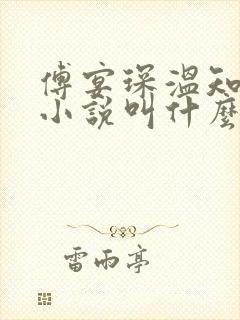 傅宴琛溫知
小說叫什麼
雷雨亭